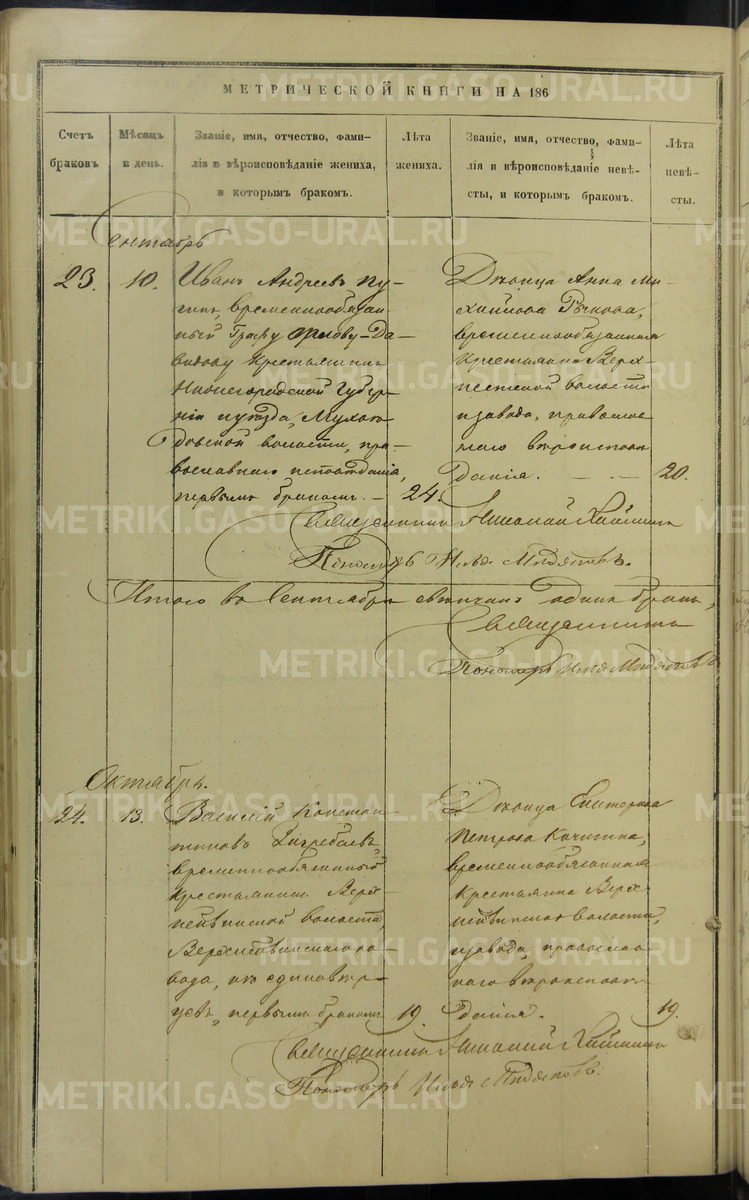 МЕТРИЧЕСКОЙ КНИГИ НА 186
Счетъ браковъ.
Мѣсяцъ и день.
Званіе, имя, отчество, фами-
лія и вѣроисповѣданіе жениха,
и которымъ бракомъ.
Лѣта жениха.
Званіе, имя, отчество, фами-
лія и вѣроисповѣданіе невѣ-
сты, и которымъ бракомъ.
Лѣта невѣ-
сты.
Сентябрь
23.
10.
Иванъ Андреевъ
временнообязан-
ный Графу Орлову-Да-
видову крестьянинъ
Нижегородской Губер-
ніи и уѣзда,
волости, пра-
вославнаго исповѣданія,
первымъ бракомъ. —
24.
Дѣвица Анна Ми-
хайлова
временнообязанная
крестьянка Верх-
волости
и завода, православ-
наго вѣроисповѣ-
данія. — —
20.
Священникъ
Пономарь Илья
Итого въ Сентябрѣ одинъ бракъ,
Священникъ
Пономарь Илья
Октябрь.
24.
13.
Василій Констан-
тиновъ
временнообязанный
крестьянинъ Верх-
нейвинской волости,
Верхнейвинскаго за-
вода, изъ единовѣр-
цевъ, первымъ бракомъ
19.
Дѣвица Екатерина
Петрова
временнообязанная
крестьянка Верх-
нейвинской волости,
и завода, православ-
наго вѣроисповѣ-
данія.
19.
Священникъ
Пономарь Илья
METRIKI.GASO-URAL.RU